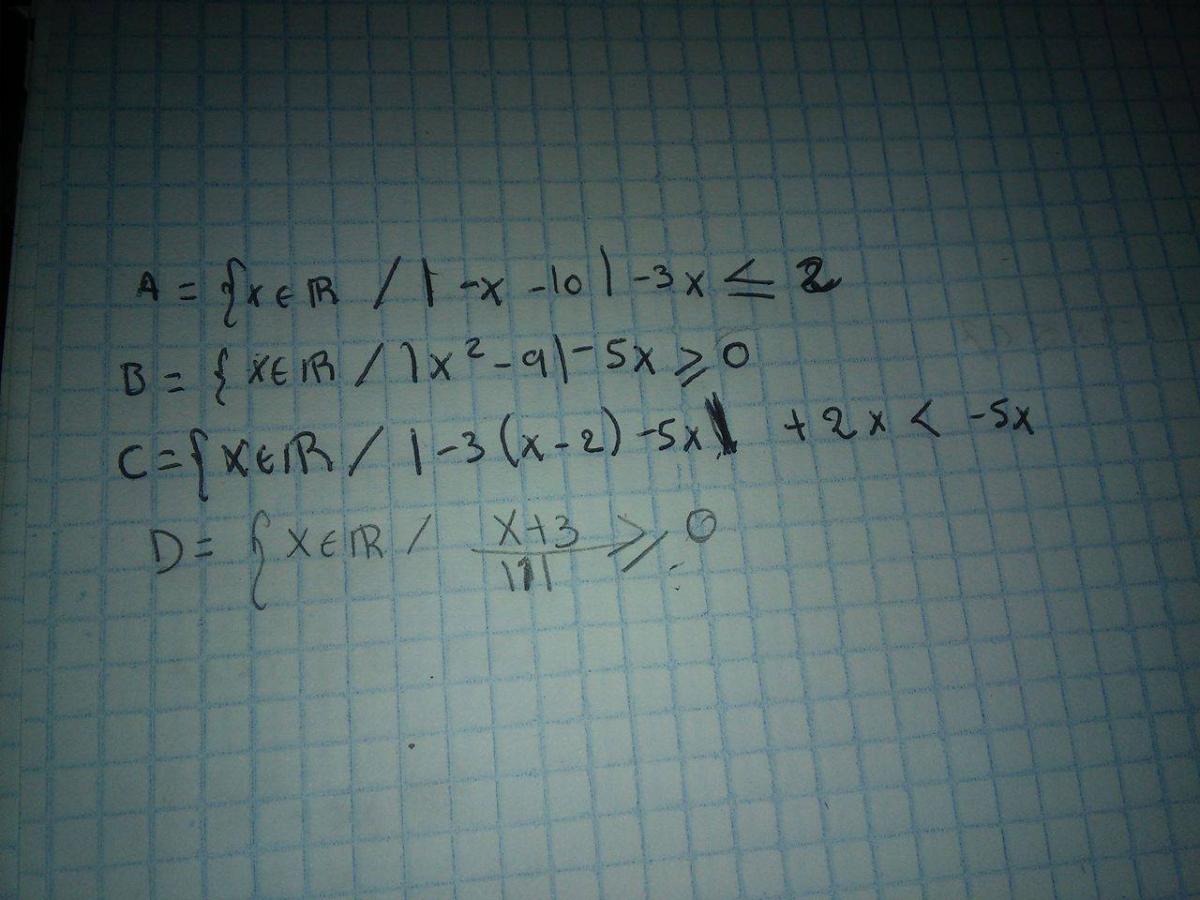 A = {x ∈ ℝ / |-x -10| -3x ≤ 2
B = { x ∈ ℝ / |x² - 9| - 5x ≥ 0
C = { x ∈ ℝ / |-3 (x-2) -5x| + 2x < -5x
D = { x ∈ ℝ / x+3 ≥ 0